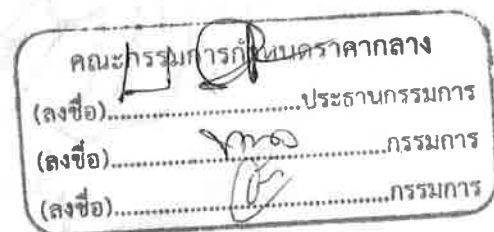 คณะกรรมการกำหนดราคากลาง
(ลงชื่อ)..............................ประธานกรรมการ
(ลงชื่อ)..............................กรรมการ
(ลงชื่อ)..............................กรรมการ